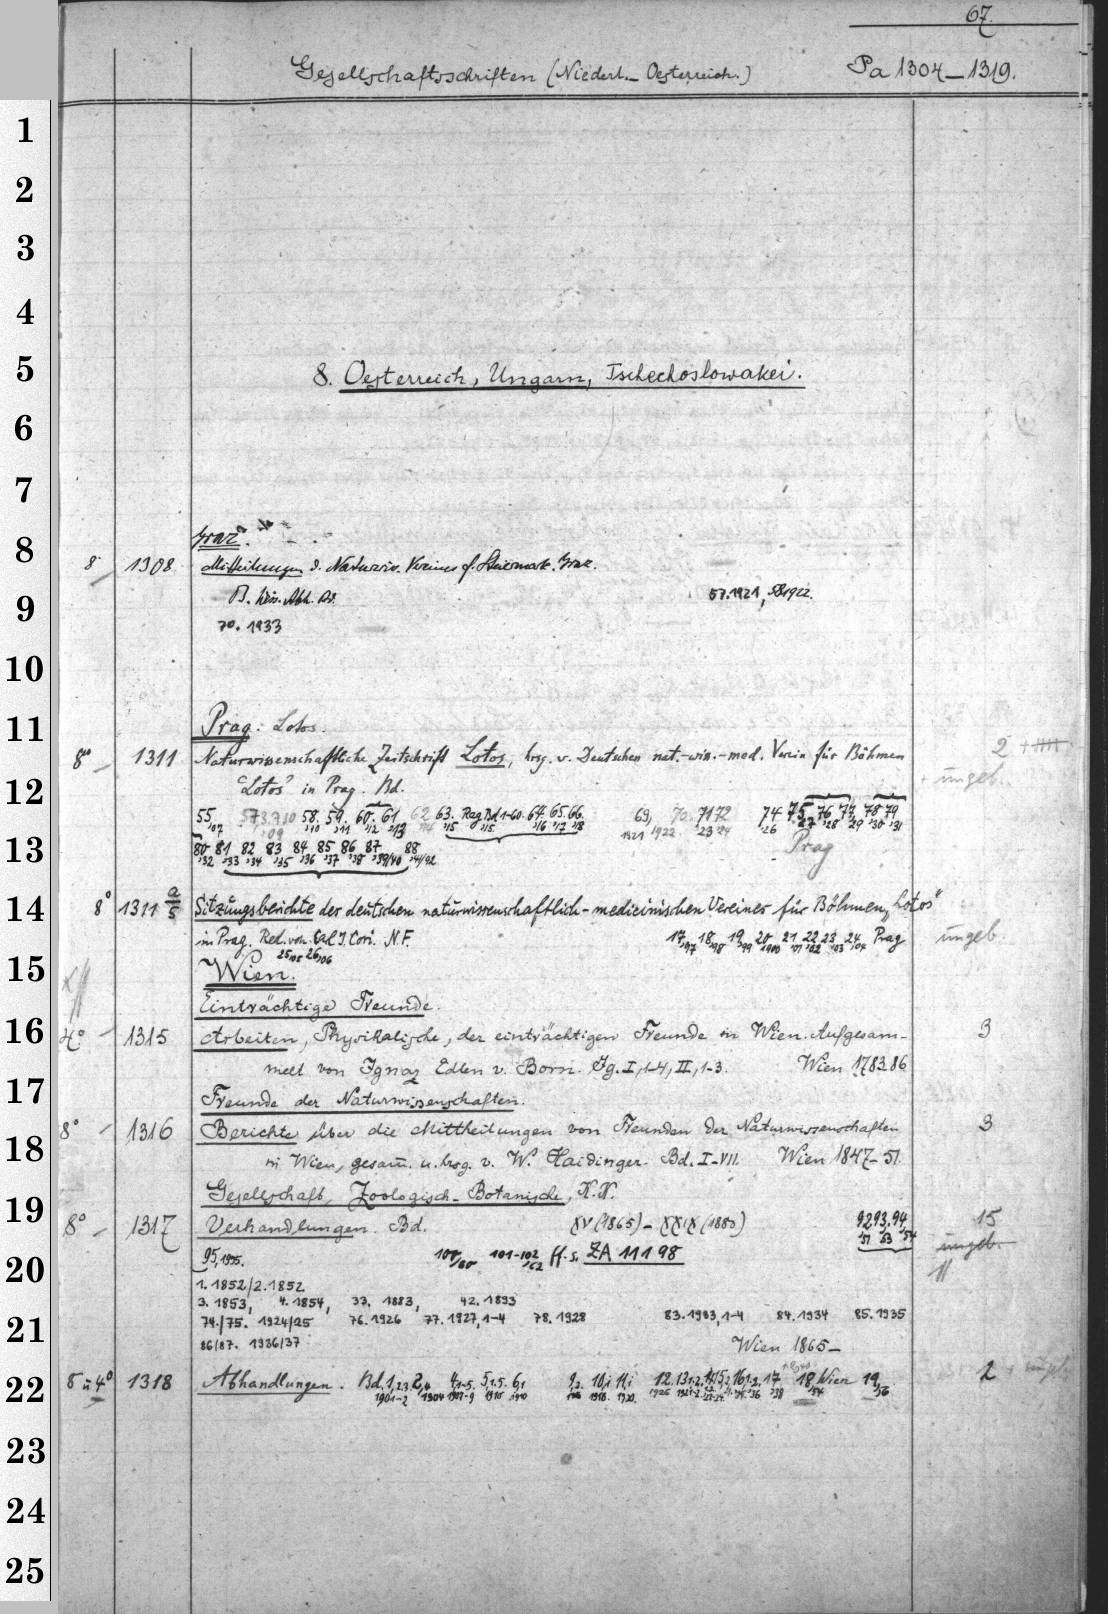 67.
Gesellschaftsschriften (Niederl. – Oesterreich.) Pa 1304–1319.
1
2
3
4
5
8. Oesterreich, Ungarn, Tschechoslowakei.
6
7
Graz.
8
8° 1308 Mitteilungen d. Naturwiss. Vereines f. Steiermark. Graz.
9
57.1921, 58.1922.
70. 1933
10
11
Prag: Lotos.
8° 1311 Naturwissenschaftliche Zeitschrift Lotos, hrsg. v. Deutschen nat.-wiss.-med. Verein für Böhmen 2
12
"Lotos" in Prag. Bd. + ungeb.
55, 58. 59. 60. 61 62 63. Reg Bd 1-60. 64. 65. 66. 69, 70. 71 72 74 75, 76, 77, 78 79
'07 '09 '10 '11 '12 '13 '14 '15 '15 '16 '17 '18 1921 1922 '23 '24 '26 '27 '28 '29 '30 '31
13
80 81 82 83 84 85 86 87 88 Prag
'32 '33 '34 '35 '36 '37 '38 '39/40 '41/42
14
8° 1311 a/5 Sitzungsberichte der deutschen naturwissenschaftlich-medicinischen Vereines für Böhmen „Lotos"
in Prag. Red. von Carl I. Cori. N.F. 17 18 19 20 21 22 23 24 Prag ungeb.
'97 '98 '99 1900 '01 '02 '03 '04
25 '05 26 '06
15
Wien.
Einträchtige Freunde.
16
4° 1315 Arbeiten, Physikalische, der einträchtigen Freunde in Wien. Aufgesam- 3
melt von Ignaz Edlen v. Born. Jg. I,1-4, II,1-3. Wien 1783.86
17
Freunde der Naturwissenschaften.
8° 1316 Berichte über die Mittheilungen von Freunden der Naturwissenschaften 3
18
in Wien, gesam. u. hrsg. v. W. Haidinger. Bd. I-VII. Wien 1847-51.
Gesellschaft, Zoologisch-Botanische, K.K.
19
8° 1317 Verhandlungen. Bd. XV (1865) – XXIX (1880) 92 93, 94, 15
'51 '53 '54 ungeb.
95, 1955. 100/60 101-102/62 ff. s. ZA 11198
20
1. 1852/2. 1852
3. 1853, 4. 1854, 33. 1883, 42. 1893
21
74./75. 1924/25 76. 1926 77. 1927, 1-4 78. 1928 83. 1933, 1-4 84. 1934 85. 1935
86/87. 1936/37 Wien 1865–
22
8° u. 4° 1318 Abhandlungen. Bd. 1,2.3. 2,4 4,1-5. 5,1.5. 6,1 9,2. 10,1 11,1 12. 17 18 Wien 19, 2
1901-2 1904 1907-9 1910 1910 1916 1918. 1920. 1926 '38 '54 '56
23
24
25